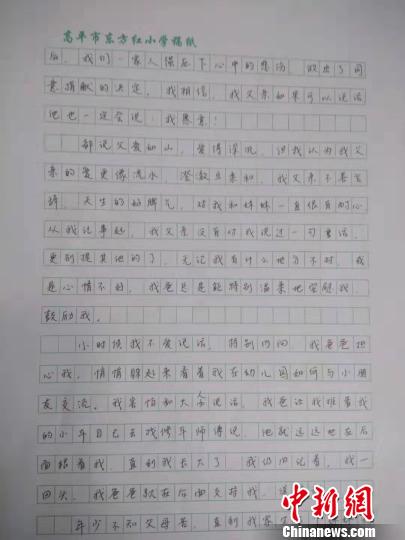 高平市东方红小学稿纸
后，我们一家人强忍下心中的悲伤 做出了同
意捐献的决定，我相信，我父亲如果可以说话
他也一定会说：我愿意！
都说父爱如山，爱得深沉，但我认为我父
亲的爱更像流水，澄澈且柔和，我父亲不善言
辞，天生的好脾气，对我和妹妹一直很有耐心
从我记事起，我父亲没有对我说过一句重话，
更别提其他的了，无论我有什么地方不对，我
是心情不好，我爸总是能特别温柔地安慰我，
鼓励我。
小时候我不爱说话，特别内向，我爸爸担
心我，悄悄躲起来看着我在幼儿园如何与小朋
友交流。我害怕和大人说话，我爸让我推着我
的小车自己去找修车师傅说，他就远远地在后
面跟着我，直到我长大了，我仍旧记着，我一
回头，我爸爸就在后面支持我，
年少不知父母苦，直到我
中新网
WWW.CHINANEWS.COM